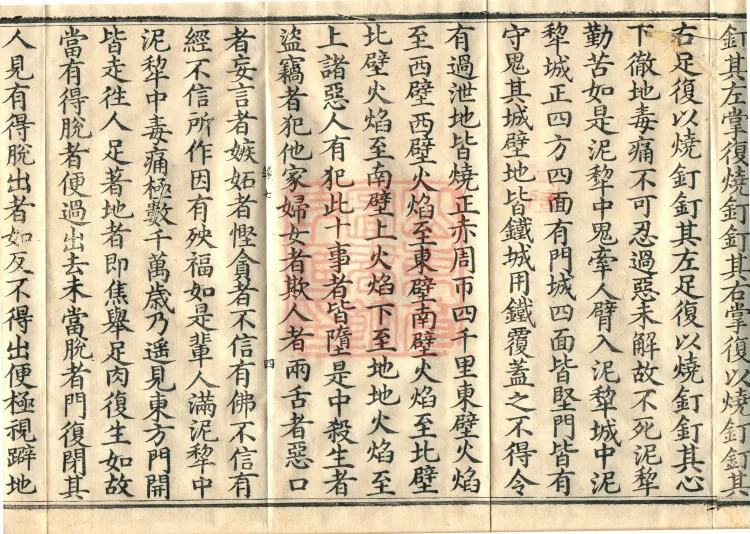 釘其左掌復燒釘釘其右掌復以燒釘釘其
右足復以燒釘釘其左足復以燒釘釘其心
下徹地毒痛不可忍過惡未解故不死泥犁
勤苦如是泥犁中鬼牽人臂入泥犁城中泥
犁城正四方四面有門城四面皆堅門皆有
守鬼其城壁地皆鐵城用鐵覆蓋之不得令
有過泄地皆燒正赤周帀四千里東壁火焰
至西壁西壁火焰至東壁南壁火焰至北壁
北壁火焰至南壁上火焰下至地地火焰至
上諸惡人有犯此十事者皆墮是中殺生者
盜竊者犯他家婦女者欺人者兩舌者惡口
者妄言者嫉妬者慳貪者不信有佛不信有
經不信所作因有殃福如是輩人滿泥犁中
泥犁中毒痛極數千萬歲乃遥見東方門開
皆走徃人足著地者即焦舉足肉復生如故
當有得脫者便過出去未當脫者門復閉其
人見有得脫出者如反不得出便極視躃地
四